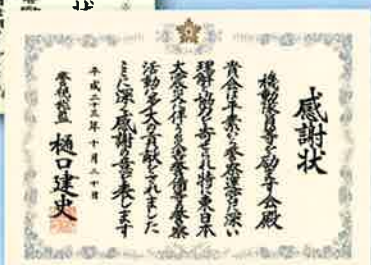 感謝状
機動隊員等を励ます会殿
貴会は平素から警察運営に深い
理解と協力を寄せられ特に東日本
大震災に伴う災害警備等警察
活動に多大の貢献をされました
ここに深く感謝の意を表します
平成二十三年十月二十日
警視総監 樋口建史
状